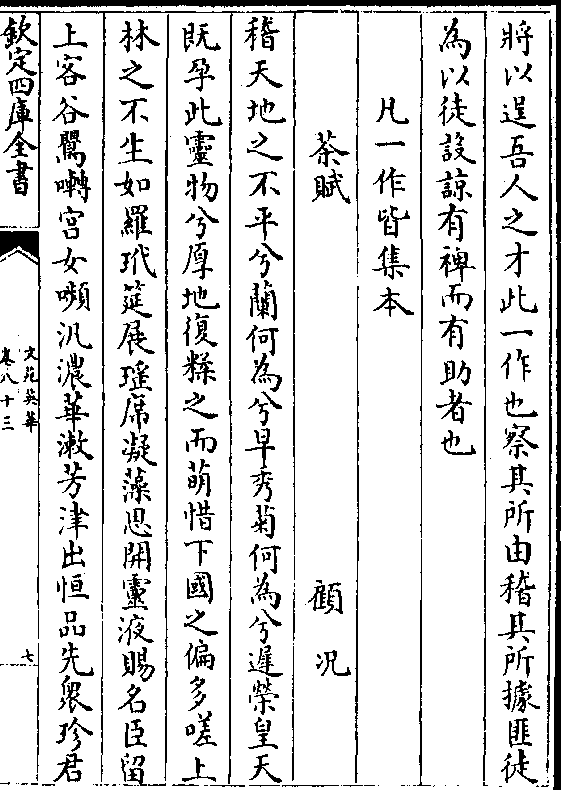 將以逞吾人之才此一作也察其所由稽其所據匪徒
為以徒設諒有裨而有助者也
凡一作皆集本
茶賦 顧况
稽天地之不平兮蘭何為兮早秀菊何為兮遲榮皇天
既孕此靈物兮厚地復糅之而萌惜下國之偏多嗟上
林之不生如羅玳筵展瑤席凝藻思開靈液賜名臣留
上客谷鸎囀宫女嚬汎濃華漱芳津出恒品先衆珍君
欽定四庫全書
文苑英華
卷八十三
七